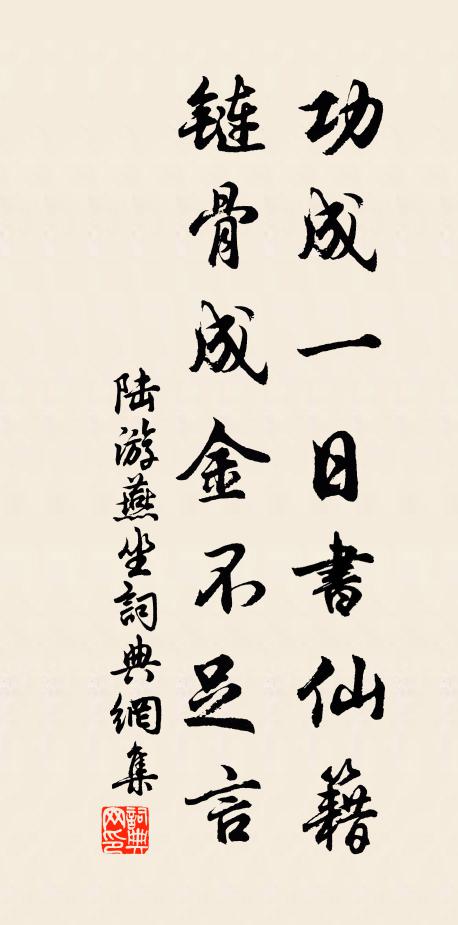 功成一日書仙籍
鏈骨成金不足言
陆游燕坐詞典網集
詞典網印